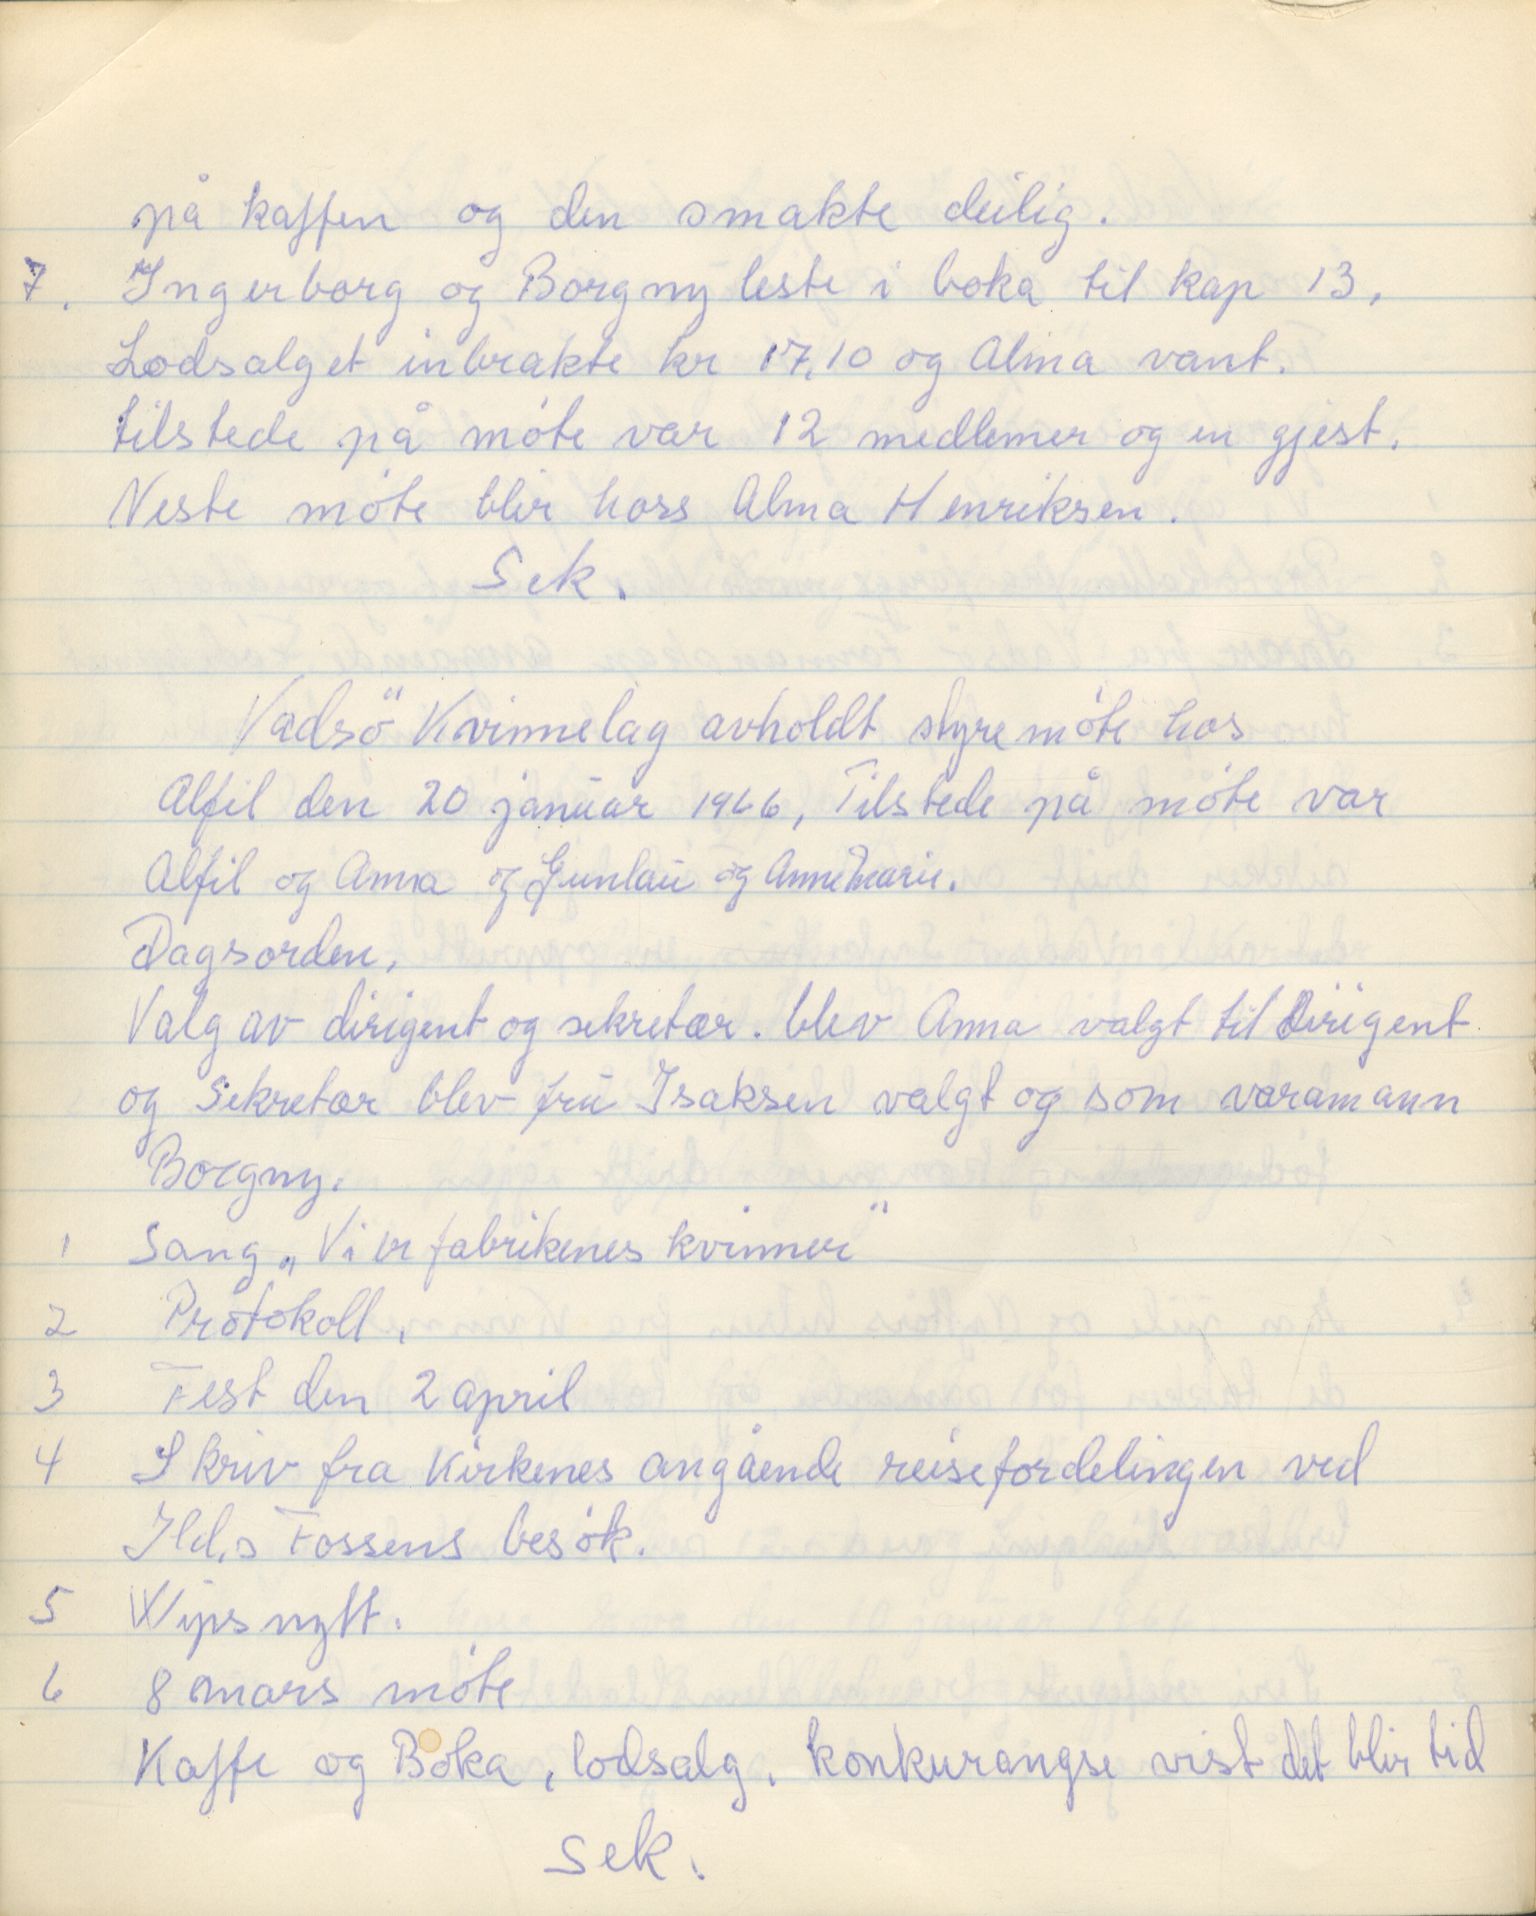 på kaffen og den smakte deilig.
7. Ingerborg og Borgny leste i boka til kap 13.
Lodsalget inbrakte kr 17,10 og Alma vant.
tilstede på möte var 12 medlemer og en gjest.
Neste möte blir hoss Alma Henriksen.
Sek.
Vadsö Kvinnelag avholdt styremöte hos
Alfil den 20 januar 1966, Tilstede på möte var
Alfil og Anna og Gunlau og AnneMarie.
Dagsorden,
Valg av dirigent og sekretær. blev Anna valgt til Dirigent
og Sekretær blev fru Isaksen valgt og som varamann
Borgny.
1 Sang „Vi er fabrikenes kvinner"
2 Protokoll.
3 Fest den 2 april
4 Skriv fra Kirkenes angående reisefordelingen ved
Fossens besök.
5 Wips nytt.
6 8 mars möte
Kaffe og Boka, lodsalg, konkurangse vist det blir tid
Sek.